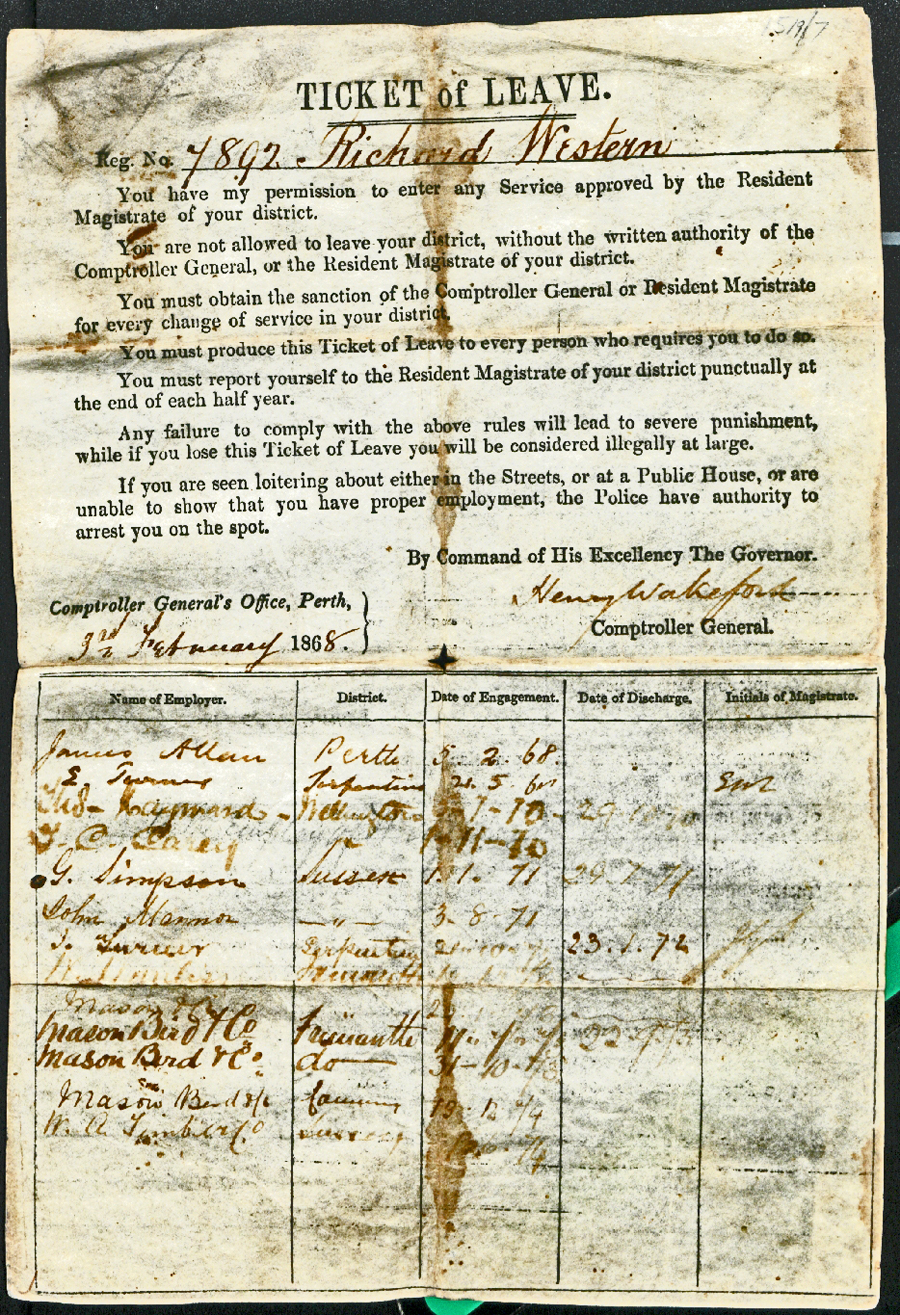 TICKET of LEAVE.
Reg. No. 7892 Richard Western
You have my permission to enter any Service approved by the Resident
Magistrate of your district.
You are not allowed to leave your district, without the written authority of the
Comptroller General, or the Resident Magistrate of your district.
You must obtain the sanction of the Comptroller General or Resident Magistrate
for every change of service in your district.
You must produce this Ticket of Leave to every person who requires you to do so.
You must report yourself to the Resident Magistrate of your district punctually at
the end of each half year.
Any failure to comply with the above rules will lead to severe punishment,
while if you lose this Ticket of Leave you will be considered illegally at large.
If you are seen loitering about either in the Streets, or at a Public House, or are
unable to show that you have proper employment, the Police have authority to
arrest you on the spot.
By Command of His Excellency The Governor.
Henry Wakeford
Comptroller General's Office, Perth,
Comptroller General.
February 1868.
Name of Employer. District. Date of Engagement. Date of Discharge. Initials of Magistrate.
James Allan Perth 5 2 68
E. Turner Serpentine
Hayward
1-11-70
G. Simpson Sussex 1 1 71 29 7 71
John Mannon — " — 3-8-71
J. Turner Serpentine 23.1.72
Mason Bird & Co Fremantle
Mason Bird & Co. do 31-10-73
Mason Bird & Co Canning
W. A. Timber Co